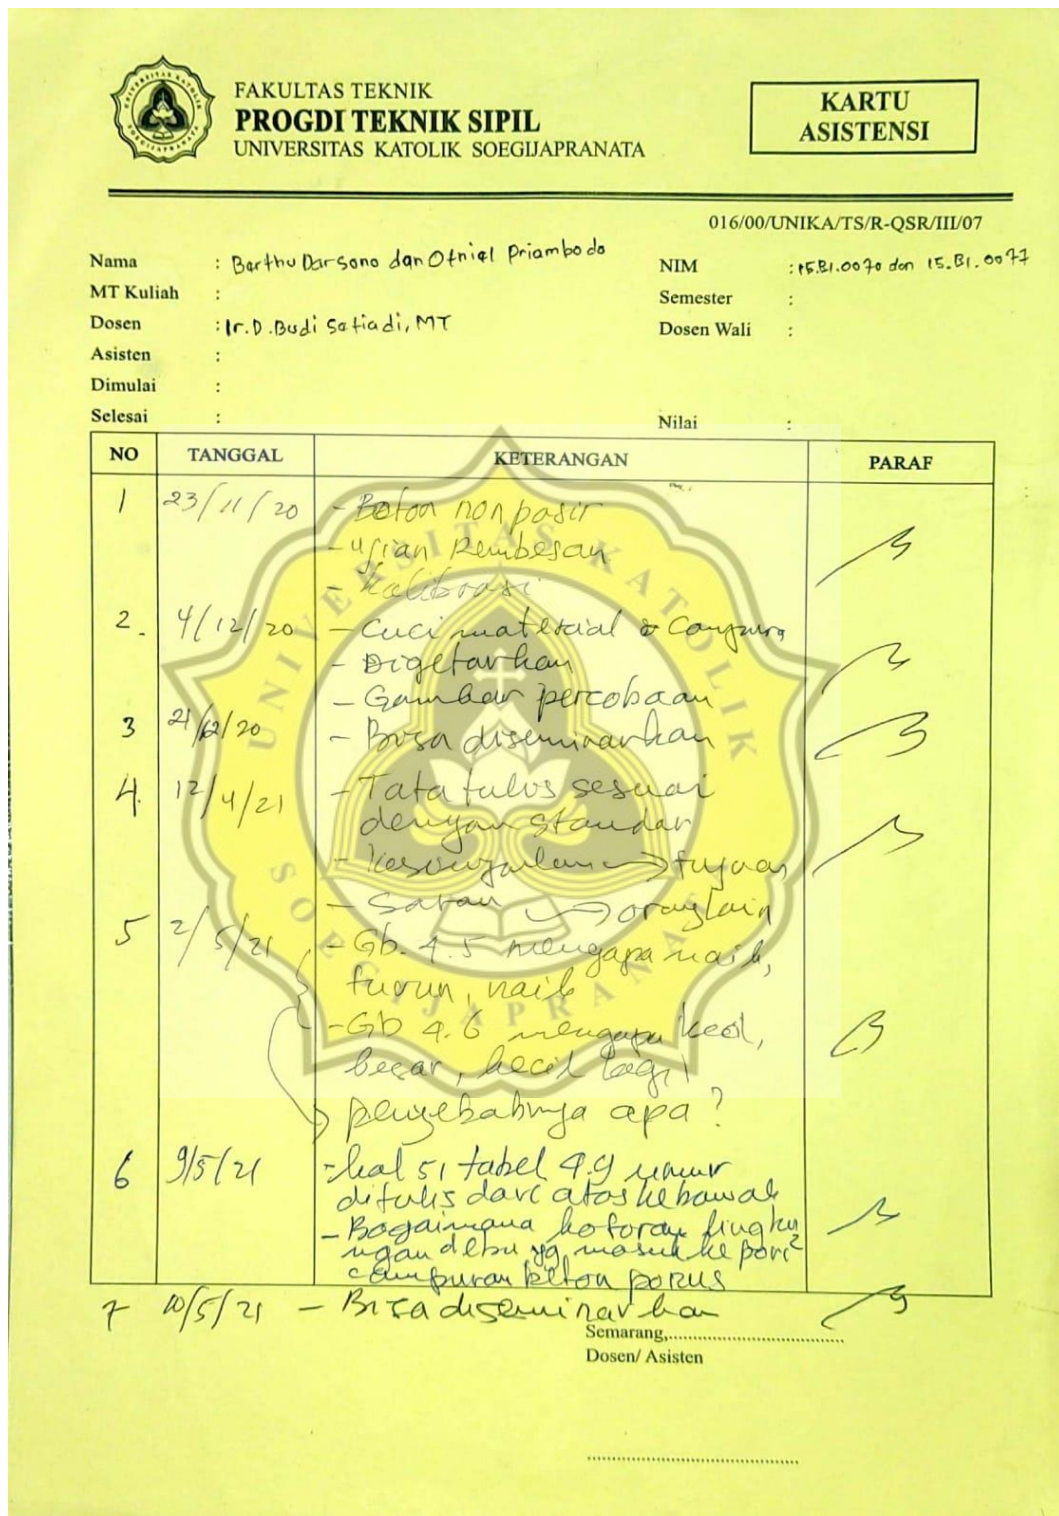 FAKULTAS TEKNIK
PROGDI TEKNIK SIPIL
UNIVERSITAS KATOLIK SOEGIJAPRANATA
KARTU
ASISTENSI
016/00/UNIKA/TS/R-QSR/III/07
Nama : Barthu Darsono dan Otniel Priambodo
NIM : 15.B1.0070 dan 15.B1.0077
MT Kuliah :
Semester :
Dosen : Ir. D. Budi Setiadi, MT
Dosen Wali :
Asisten :
Dimulai :
Selesai :
Nilai :
NO TANGGAL KETERANGAN PARAF
1 23/11/20 - Beton non pasir
- ujian Rembesan
- Kalibrasi
2. 4/12/20 - Cuci material &
- Digetarkan
- Gambar percobaan
3 21/12/20 - Bisa diseminarkan
4. 12/4/21 - Tata tulis sesuai
dengan standar
- Kesimpulan → tujuan
- Saran → orang lain
5 2/5/21 - Gb. 4.5 mengapa naik,
turun, naik
- Gb 4.6 mengapa kecil,
besar, kecil lagi
penyebabnya apa?
6 9/5/21 - hal 51 tabel 4.9 umur
ditulis dari atas kebawah
- Bagaimana kotoran lingku
ngan debu yg masuk ke pori²
campuran beton porus
7 10/5/21 - Bisa diseminarkan
Semarang,....................................
Dosen/ Asisten
UNIVERSITAS KATOLIK
SOEGIJAPRANATA